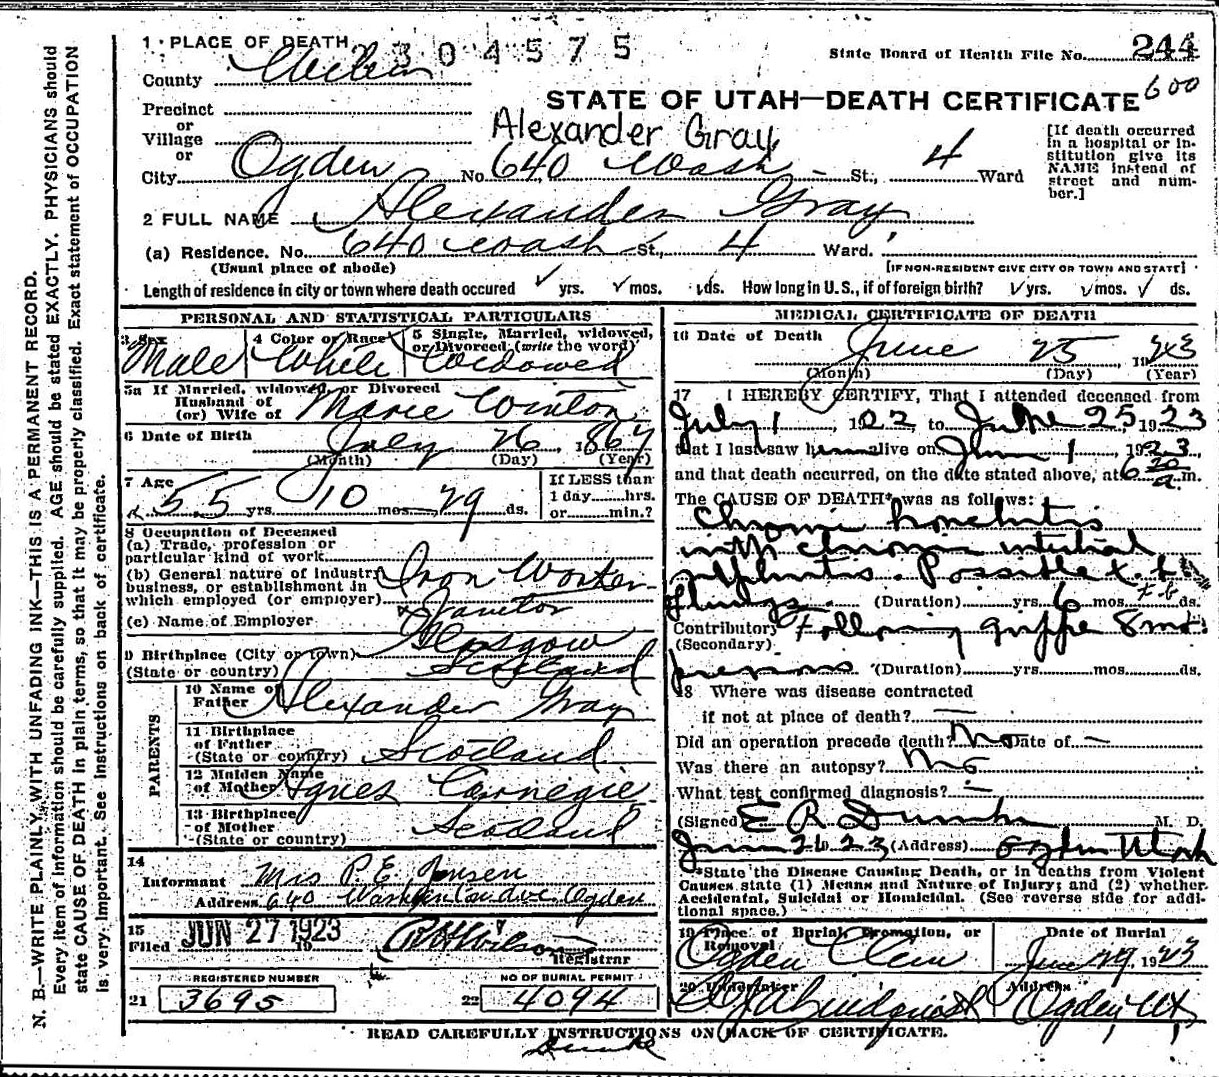 N. B.—WRITE PLAINLY, WITH UNFADING INK—THIS IS A PERMANENT RECORD.
Every item of information should be carefully supplied. AGE should be stated EXACTLY. PHYSICIANS should
state CAUSE OF DEATH in plain terms, so that it may be properly classified. Exact statement of OCCUPATION
is very important. See instructions on back of certificate.
1 PLACE OF DEATH 2304575
State Board of Health File No. 244
County Weber
600
STATE OF UTAH—DEATH CERTIFICATE
Precinct
or
Village
or
Alexander Gray
[If death occurred
in a hospital or in-
stitution give its
NAME instead of
street and num-
ber.]
City Ogden No. 640 Wash St., 4 Ward
2 FULL NAME Alexander Gray
(a) Residence. No. 640 Wash St., 4 Ward.
(Usual place of abode)
[IF NON-RESIDENT GIVE CITY OR TOWN AND STATE]
Length of residence in city or town where death occured yrs. mos. ds. How long in U.S., if of foreign birth? yrs. mos. ds.
PERSONAL AND STATISTICAL PARTICULARS
3 Sex 4 Color or Race 5 Single, Married, widowed,
or Divorced (write the word)
Male White Widowed
5a If Married, widowed, or Divorced
Husband of
(or) Wife of Marie Winton
6 Date of Birth July 26 1867
(Month) (Day) (Year)
7 Age If LESS than
1 day hrs.
or min.?
55 yrs. 10 mos. 29 ds.
8 Occupation of Deceased
(a) Trade, profession or
particular kind of work
(b) General nature of industry,
business, or establishment in
which employed (or employer)
Iron Worker
Janitor
(c) Name of Employer
9 Birthplace (City or town) Glasgow
(State or country) Scotland
PARENTS
10 Name of
Father Alexander Gray
11 Birthplace
of Father
(State or country) Scotland
12 Maiden Name
of Mother Agnes Carnegie
13 Birthplace
of Mother
(State or country) Scotland
14
Informant Mrs P.E. Jensen
Address 640 Washington Ave Ogden
15
Filed JUN 27 1923
Registrar
REGISTERED NUMBER NO OF BURIAL PERMIT
21 3695 22 4094
MEDICAL CERTIFICATE OF DEATH
16 Date of Death June 25 1923
(Month) (Day) (Year)
17 I HEREBY CERTIFY, That I attended deceased from
July 1, 1922, to June 25 1923
that I last saw him alive on June 1, 1923,
and that death occurred, on the date stated above, at 6 20 a. m.
The CAUSE OF DEATH* was as follows:
Chronic bronchitis
with chronic intestinal
Possible
(Duration) yrs. 6 mos. ds.
Contributory Following grippe 8 mo.
(Secondary)
previous (Duration) yrs. mos. ds.
18 Where was disease contracted
if not at place of death? —
Did an operation precede death? No Date of —
Was there an autopsy? No
What test confirmed diagnosis? —
(Signed) E R Dumke M. D.
June 26 23 (Address) Ogden Utah
*State the Disease Causing Death, or in deaths from Violent
Causes, state (1) Means and Nature of Injury; and (2) whether
Accidental, Suicidal or Homicidal. (See reverse side for addi-
tional space.)
19 Place of Burial, Cremation, or
Removal Date of Burial
Ogden Cem June 29, 1923
20 Undertaker Address
Lindquist Ogden, Ut
READ CAREFULLY INSTRUCTIONS ON BACK OF CERTIFICATE.
Dumke